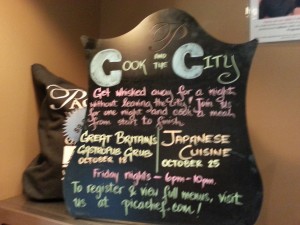 COOK AND THE CITY
Get whisked away for a night
without leaving the city! Join us
for one night and cook a meal
from start to finish.
GREAT BRITAIN'S
GASTROPUB GRUB
OCTOBER 18
JAPANESE
CUISINE
OCTOBER 25
Friday nights - 6pm-10pm.
To register & view full menus, visit
us at picachef.com!